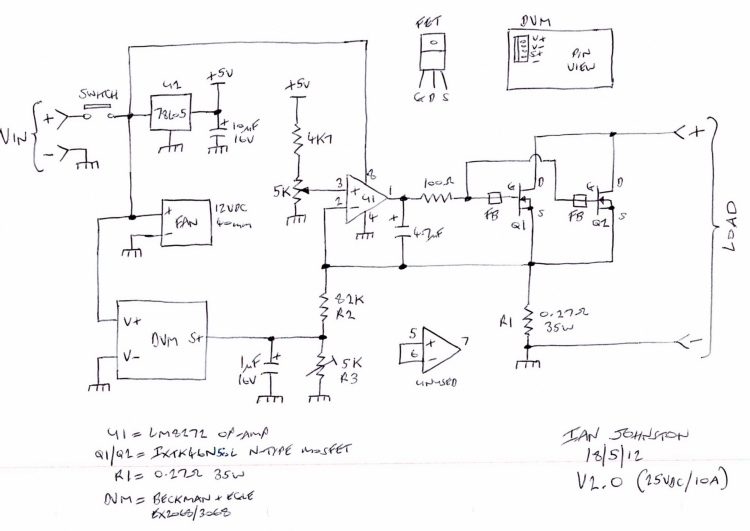 FET
G D S
DVM
V+
V-
S+
-
PIN
VIEW
VIN
+
-
SWITCH
U2
78L05
+5V
10µF
16V
+5V
4K7
5K
3
+
2
-
U1
8
4
1
100Ω
+
4.7µF
FB
G
D
S
Q1
FB
G
D
S
Q2
+
-
LOAD
+
-
FAN
12VDC
40mm
V+
DVM
S+
V-
1µF
+
16V
82K
R2
5K
R3
5
+
6
-
7
UNUSED
R1
0.27Ω
35W
U1 = LM8272 OP-AMP
Q1/Q2 = IXTK46N50L N-TYPE MOSFET
R1 = 0.27Ω 35W
DVM = BECKMAN + EGLE
EX2068/3068
IAN JOHNSTON
18/5/12
V2.0 (25VDC/10A)